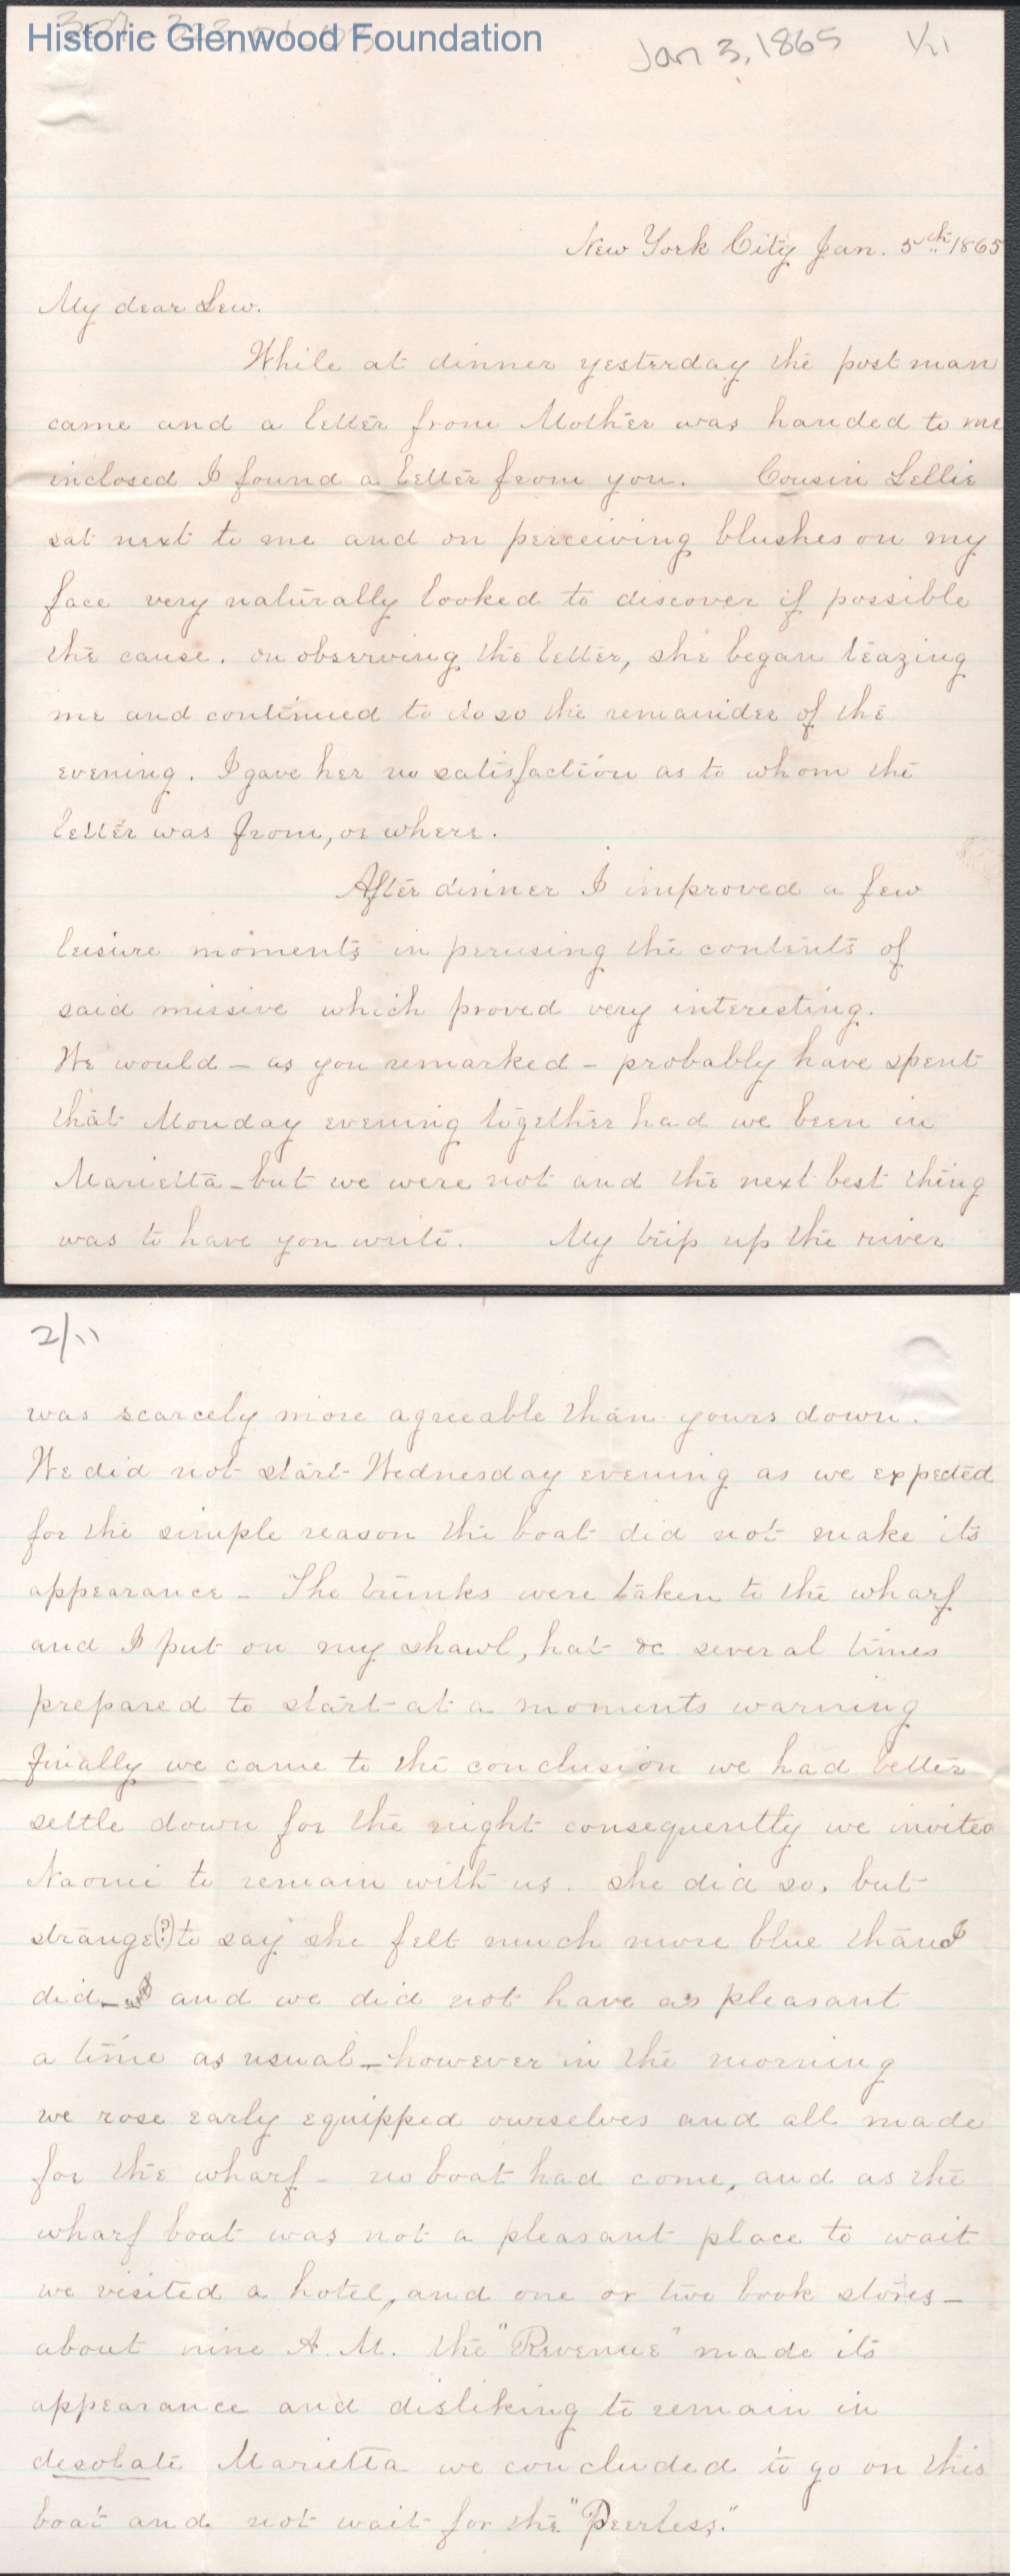 Historic Glenwood Foundation
Jan 3, 1865
1/11
New York City Jan. 5th 1865
My dear Lew.
While at dinner yesterday the post man
came and a letter from Mother was handed to me
inclosed I found a letter from you. Cousin Lellie
sat next to me and on perceiving blushes on my
face very naturally looked to discover if possible
the cause. on observing the letter, she began teazing
me and continued to do so the remainder of the
evening. I gave her no satisfaction as to whom the
letter was from, or where.
After dinner I improved a few
leisure moments in perusing the contents of
said missive which proved very interesting.
We would – as you remarked – probably have spent
that Monday evening together had we been in
Marietta – but we were not and the next best thing
was to have you write. My trip up the river
2/11
was scarcely more agreeable than yours down.
We did not start Wednesday evening as we expected
for the simple reason the boat did not make its
appearance – The trunks were taken to the wharf
and I put on my shawl, hat &c several times
prepared to start at a moments warning
finally we came to the conclusion we had better
settle down for the night consequently we invited
Naomi to remain with us. she did so, but
strange(?) to say she felt much more blue than I
did – and we did not have as pleasant
a time as usual – however in the morning
we rose early equipped ourselves and all made
for the wharf – no boat had come, and as the
wharf boat was not a pleasant place to wait
we visited a hotel, and one or two book stores –
about nine A.M. the "Revenue" made its
appearance and disliking to remain in
desolate Marietta we concluded to go on this
boat and not wait for the "Peerless."